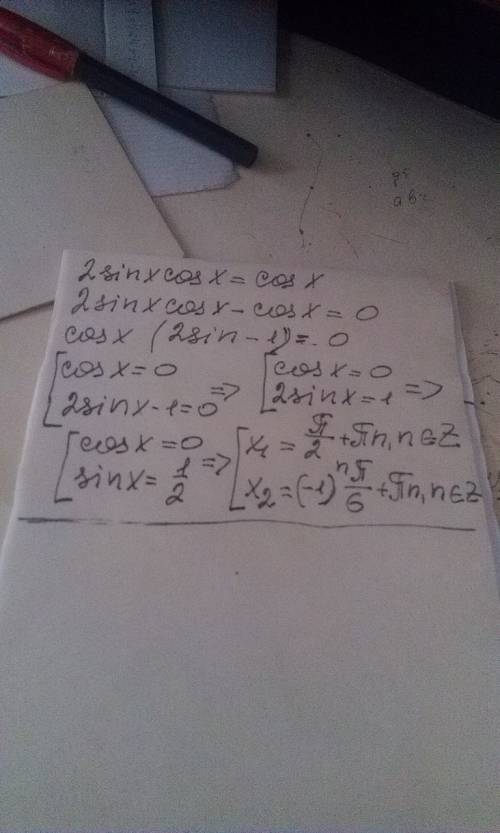 g=
ab=
2sinxcosx = cosx
2sinxcosx - cosx = 0
cosx (2sin - 1) = 0
[cosx = 0 2sinx - 1 = 0 => [cosx = 0 2sinx = 1 =>
[cosx = 0 sinx = 1/2 => [x₁ = π/2 + πn, n ∈ Z x₂ = (-1)ⁿ π/6 + πn, n ∈ Z